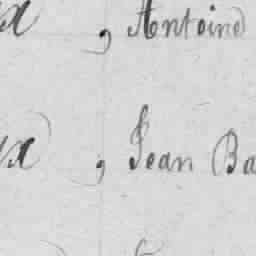 x , Antoine
x , Jean Ba